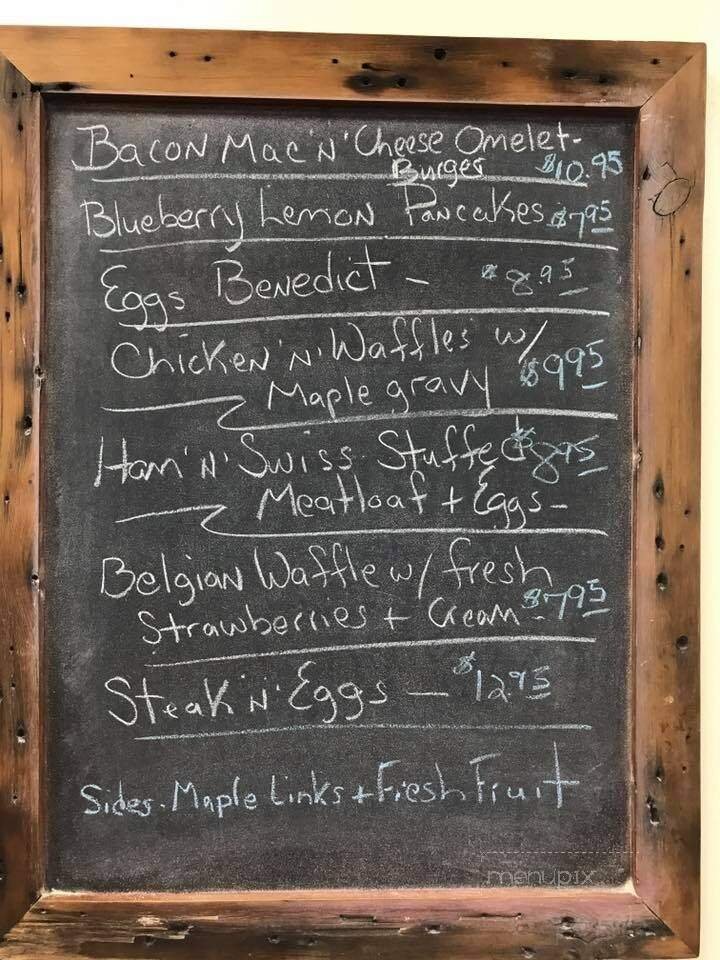 Bacon Mac 'n' Cheese Omelet-
Burger $10.95
Blueberry Lemon Pancakes $7.95
Eggs Benedict - $8.95
Chicken 'n' Waffles w/
Maple gravy $9.95
Ham 'n' Swiss Stuffed $8.95
Meatloaf + Eggs-
Belgian Waffle w/ fresh
Strawberries + Cream - $7.95
Steak 'n' Eggs - $12.95
Sides - Maple Links + Fresh Fruit
menupix